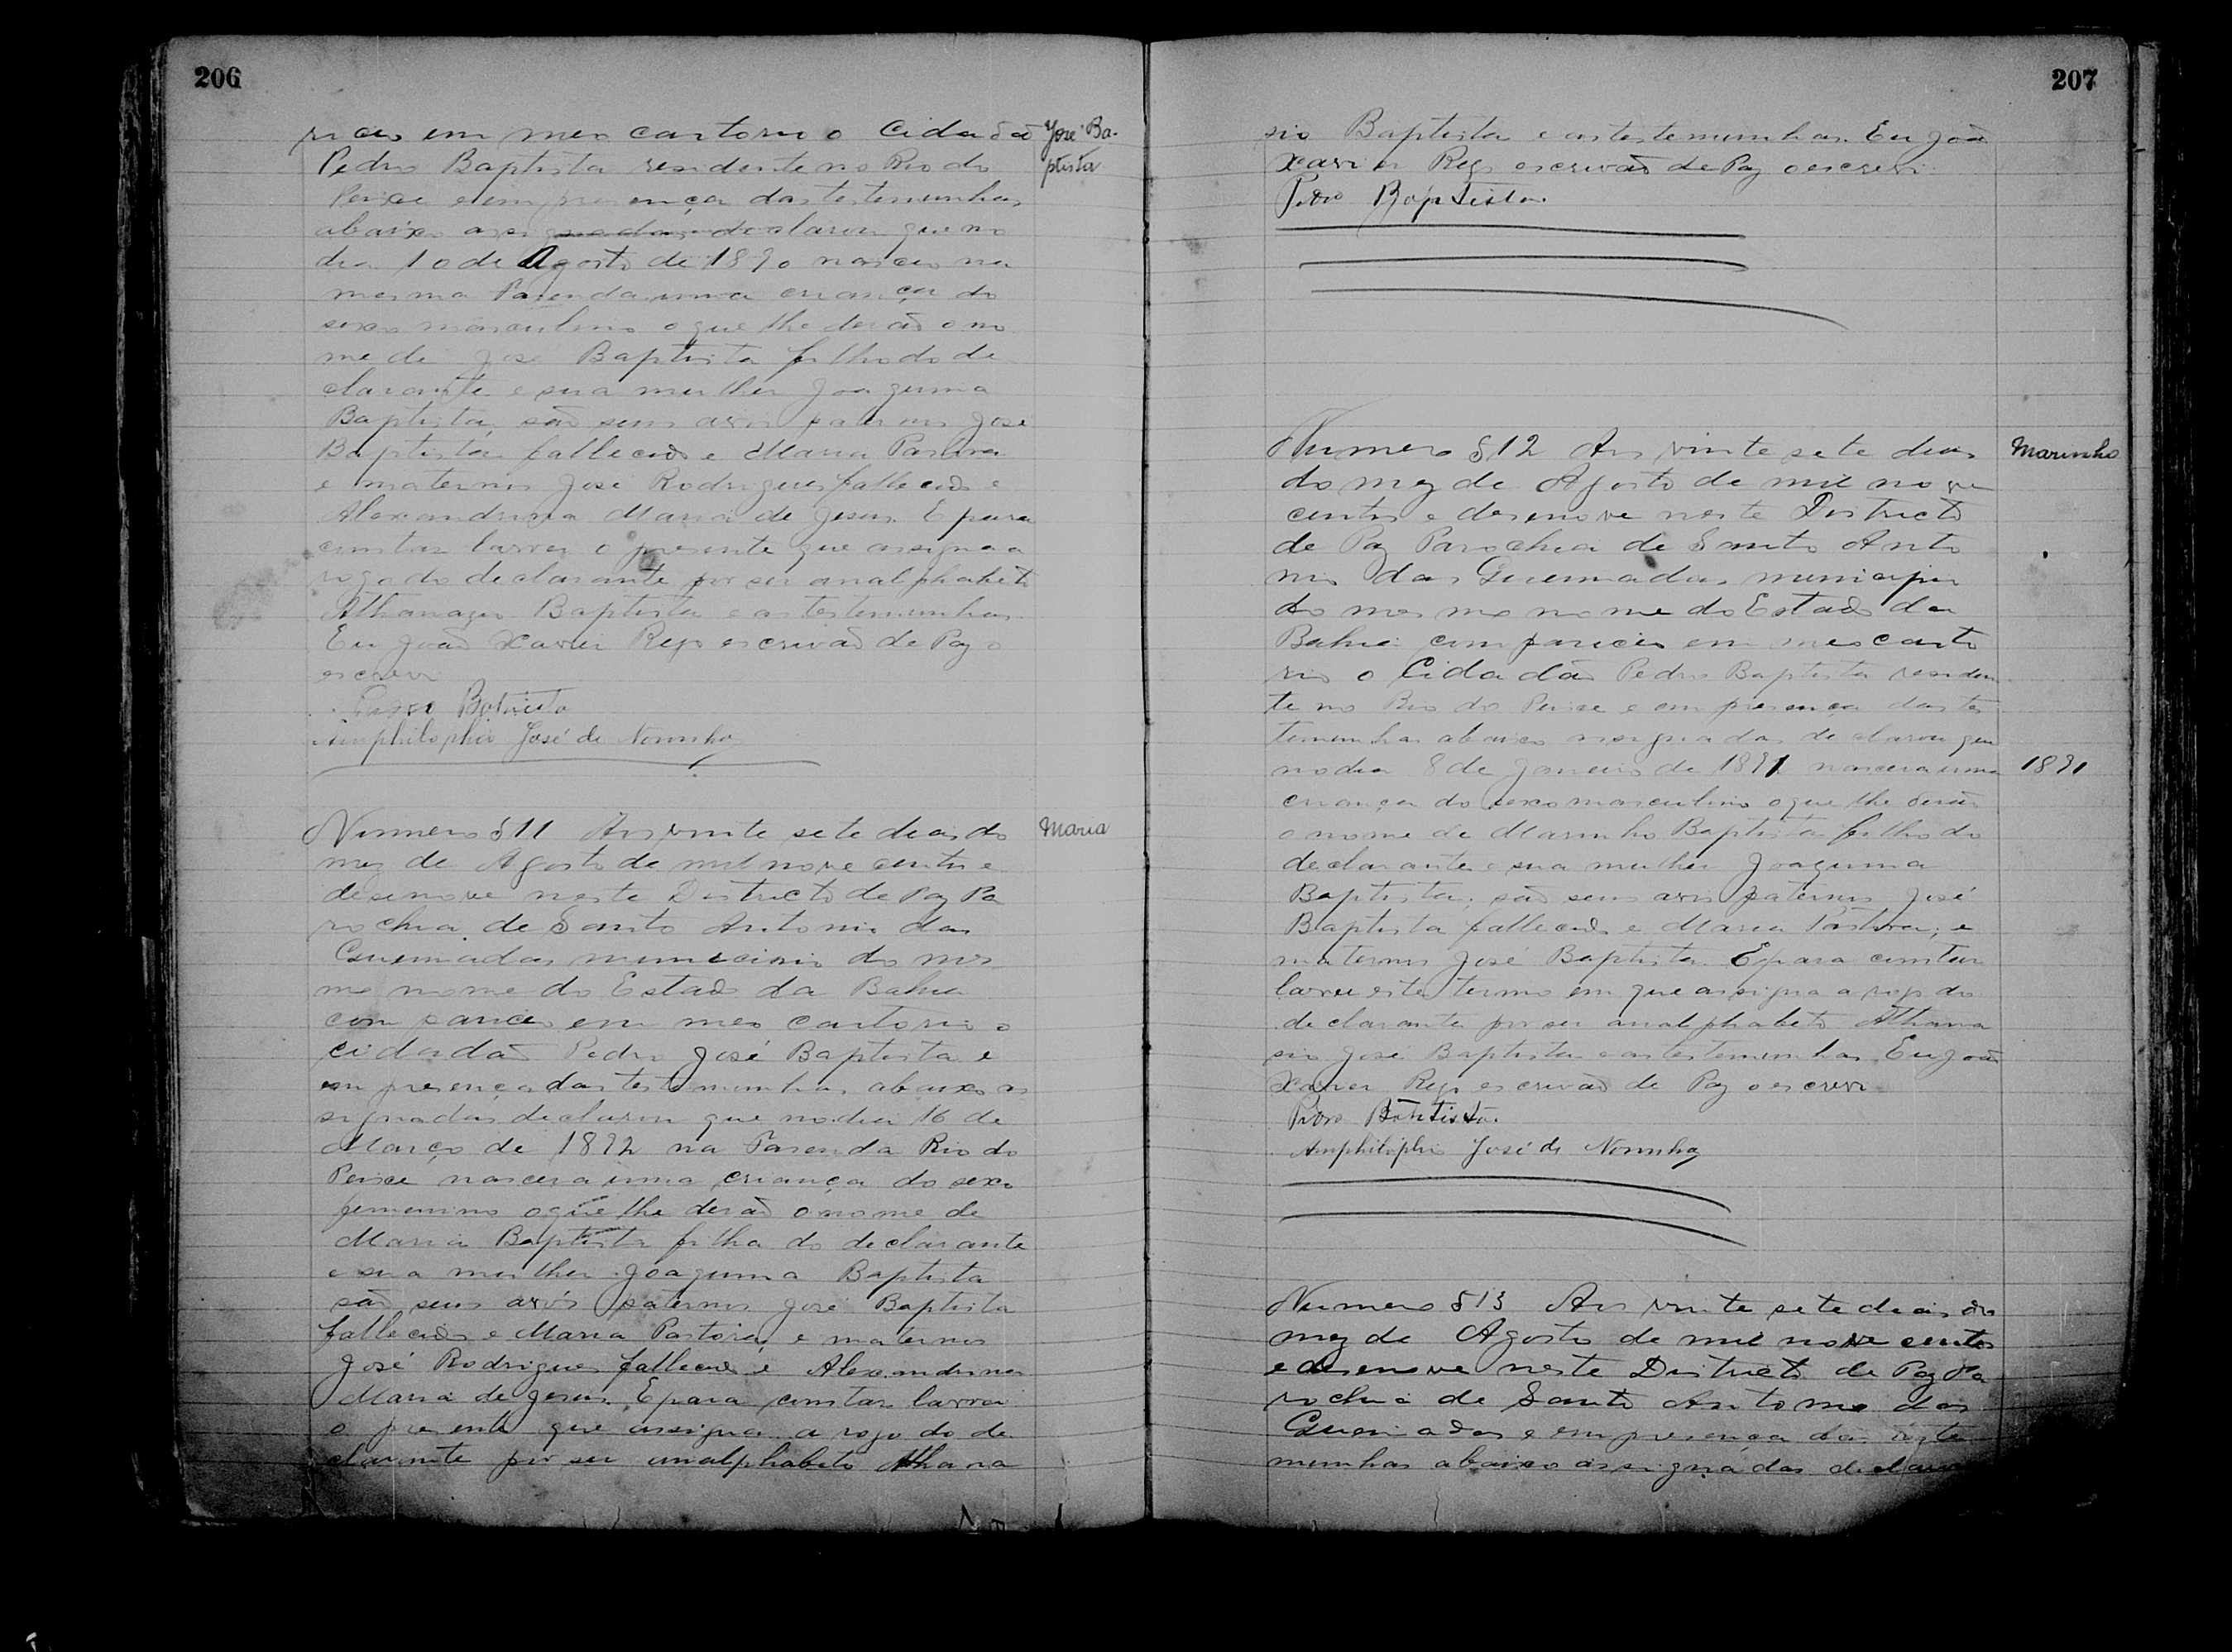 206
receu em meo cartorio o Cidadão
José Ba-
ptista
Pedro Baptista residente no Rio do
Peixe e em presença das testemunhas
abaixo assignadas declarou que no
dia 10 de Agosto de 1890 nasceu na
mesma Fasenda uma criança do
sexo masculino o que lhe derão o no
me de José Baptista filho do de
clarante e sua mulher Joaquina
Baptista, são seus avós paternos José
Baptista fallecido e Maria Pastora
e maternos José Rodrigues fallecido e
Alexandrina Maria de Jesus. E para
constar lavrei o presente que assigna a
rogo do declarante por ser analphabeto
Athanazio Baptista e as testemunhas.
Eu João Xavier Rego escrivão de Paz o
escrevi
Pedro Batista
Amphilophio José de Noronha
Numero 811 Aos vinte sete dias do
Maria
mez de Agosto de mil nove centos e
desenove neste Districto de Paz Pa
rochia de Santo Antonio das
Queimadas municipio do mes
mo nome do Estado da Bahia
compareceu em meo cartorio o
cidadão Pedro José Baptista e
em presença das testemunhas abaixo as
signadas declarou que no dia 16 de
Março de 1892 na Fasenda Rio do
Peixe nascera uma criança do sexo
femenino o que lhe derão o nome de
Maria Baptista filha do declarante
e sua mulher Joaquina Baptista
são seus avós paternos José Baptista
fallecido e Maria Pastora, e maternos
José Rodrigues fallecido e Alexandrina
Maria de Jesus. E para constar lavrei
o presente que assigna a rogo do de
clarante por ser analphabeto Athana
207
sio Baptista e as testemunhas. Eu João
Xavier Rego escrivão de Paz o escrevi.
Pedro Baptista
Numero 812 Aos vinte sete dias
Marinho
do mez de Agosto de mil nove
centos e desenove neste Districto
de Paz Parochia de Santo Anto
nio das Queimadas municipio
do mesmo nome do Estado da
Bahia compareceu em meo carto
rio o Cidadão Pedro Baptista residen
te no Rio do Peixe e em presença das tes
temunhas abaixo assignadas declarou que
no dia 8 de Janeiro de 1891 nascera uma
1891
criança do sexo masculino o que lhe derão
o nome de Marinho Baptista filho do
declarante e sua mulher Joaquina
Baptista; são seus avós paternos José
Baptista fallecido e Maria Pastora; e
maternos José Baptista. E para constar
lavrei este termo em que assigna a rogo do
declarante por ser analphabeto Athana
sio José Baptista e as testemunhas. Eu João
Xavier Rego escrivão de Paz o escrevi
Pedro Batista.
Amphilophio José de Noronha
Numero 813 Aos vinte sete dias do
mez de Agosto de mil nove centos
e desenove neste Districto de Paz Pa
rochia de Santo Antonio das
Queimadas e em presença das teste
munhas abaixo assignadas declarou